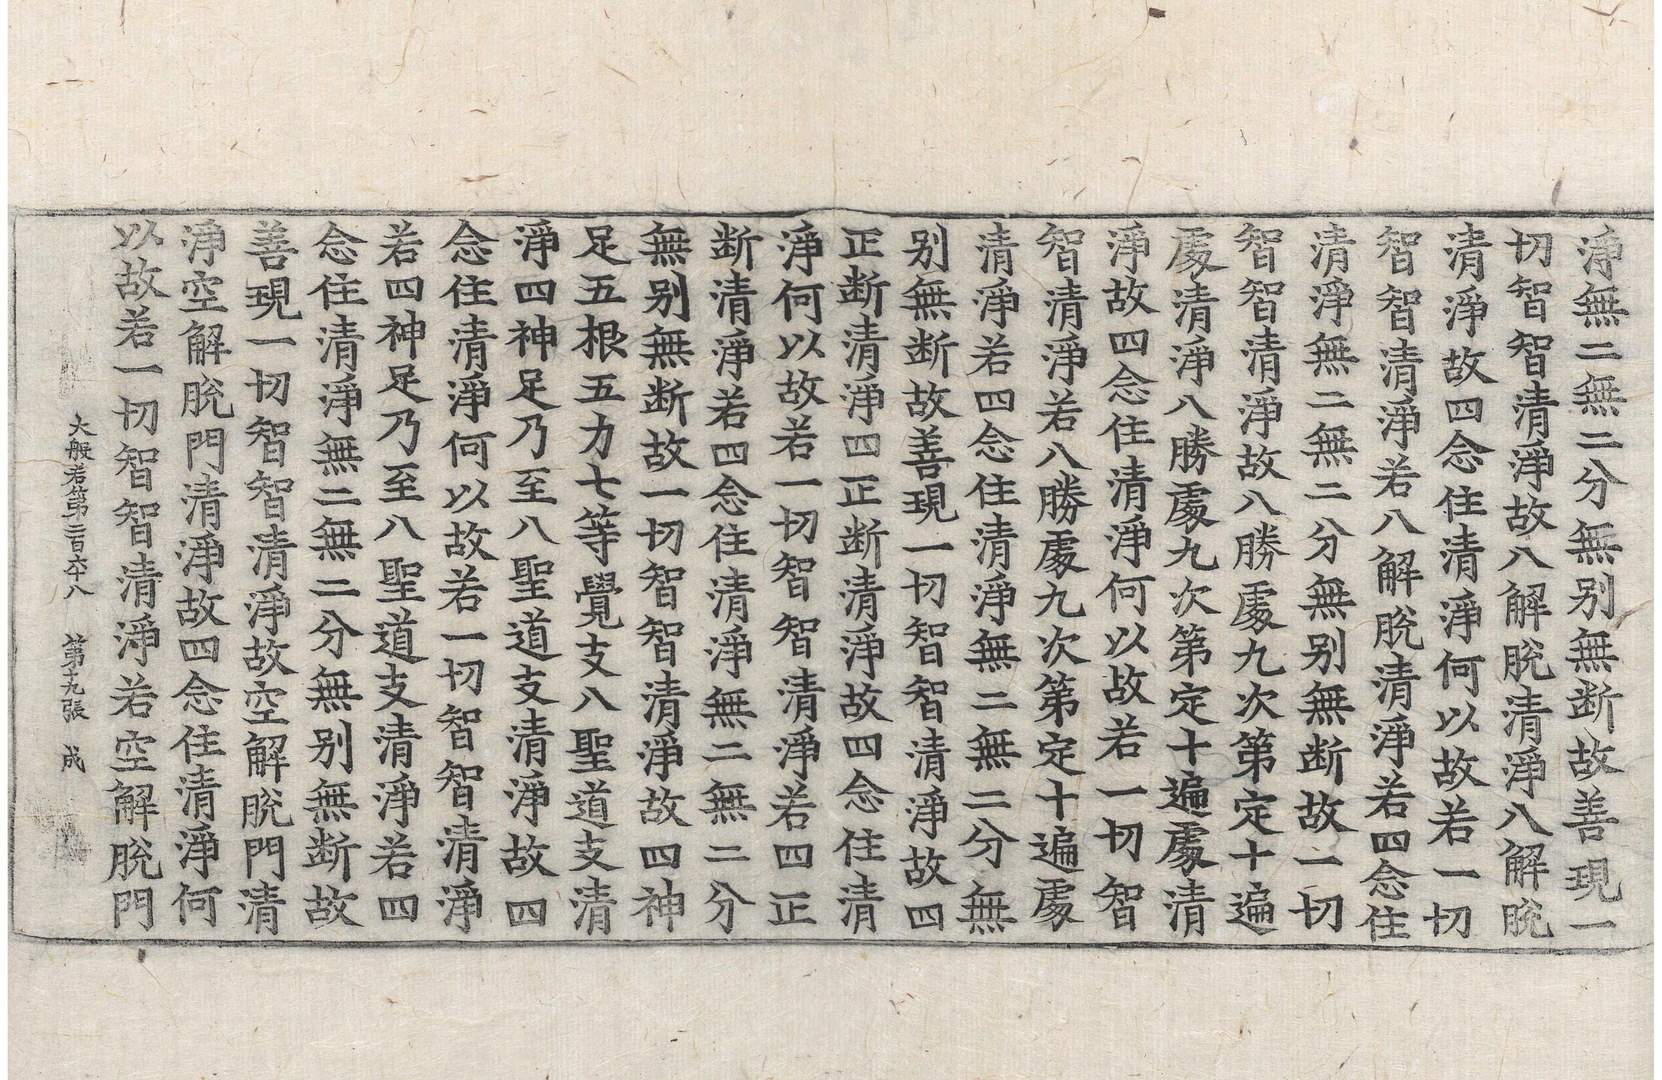 淨無二無二分無别無断故善現一
切智智清淨故八解脫清淨八解脫
清淨故四念住清淨何以故若一切
智智清淨若八解脫清淨若四念住
清淨無二無二分無别無断故一切
智智清淨故八勝處九次第定十遍
處清淨八勝處九次第定十遍處清
淨故四念住清淨何以故若一切智
智清淨若八勝處九次第定十遍處
清淨若四念住清淨無二無二分無
别無断故善現一切智智清淨故四
正断清淨四正断清淨故四念住清
淨何以故若一切智智清淨若四正
断清淨若四念住清淨無二無二分
無别無断故一切智智清淨故四神
足五根五力七等覺支八聖道支清
淨四神足乃至八聖道支清淨故四
念住清淨何以故若一切智智清淨
若四神足乃至八聖道支清淨若四
念住清淨無二無二分無别無断故
善現一切智智清淨故空解脫門清
淨空解脫門清淨故四念住清淨何
以故若一切智智清淨若空解脫門
大般若第二百六十八 第十九張 成